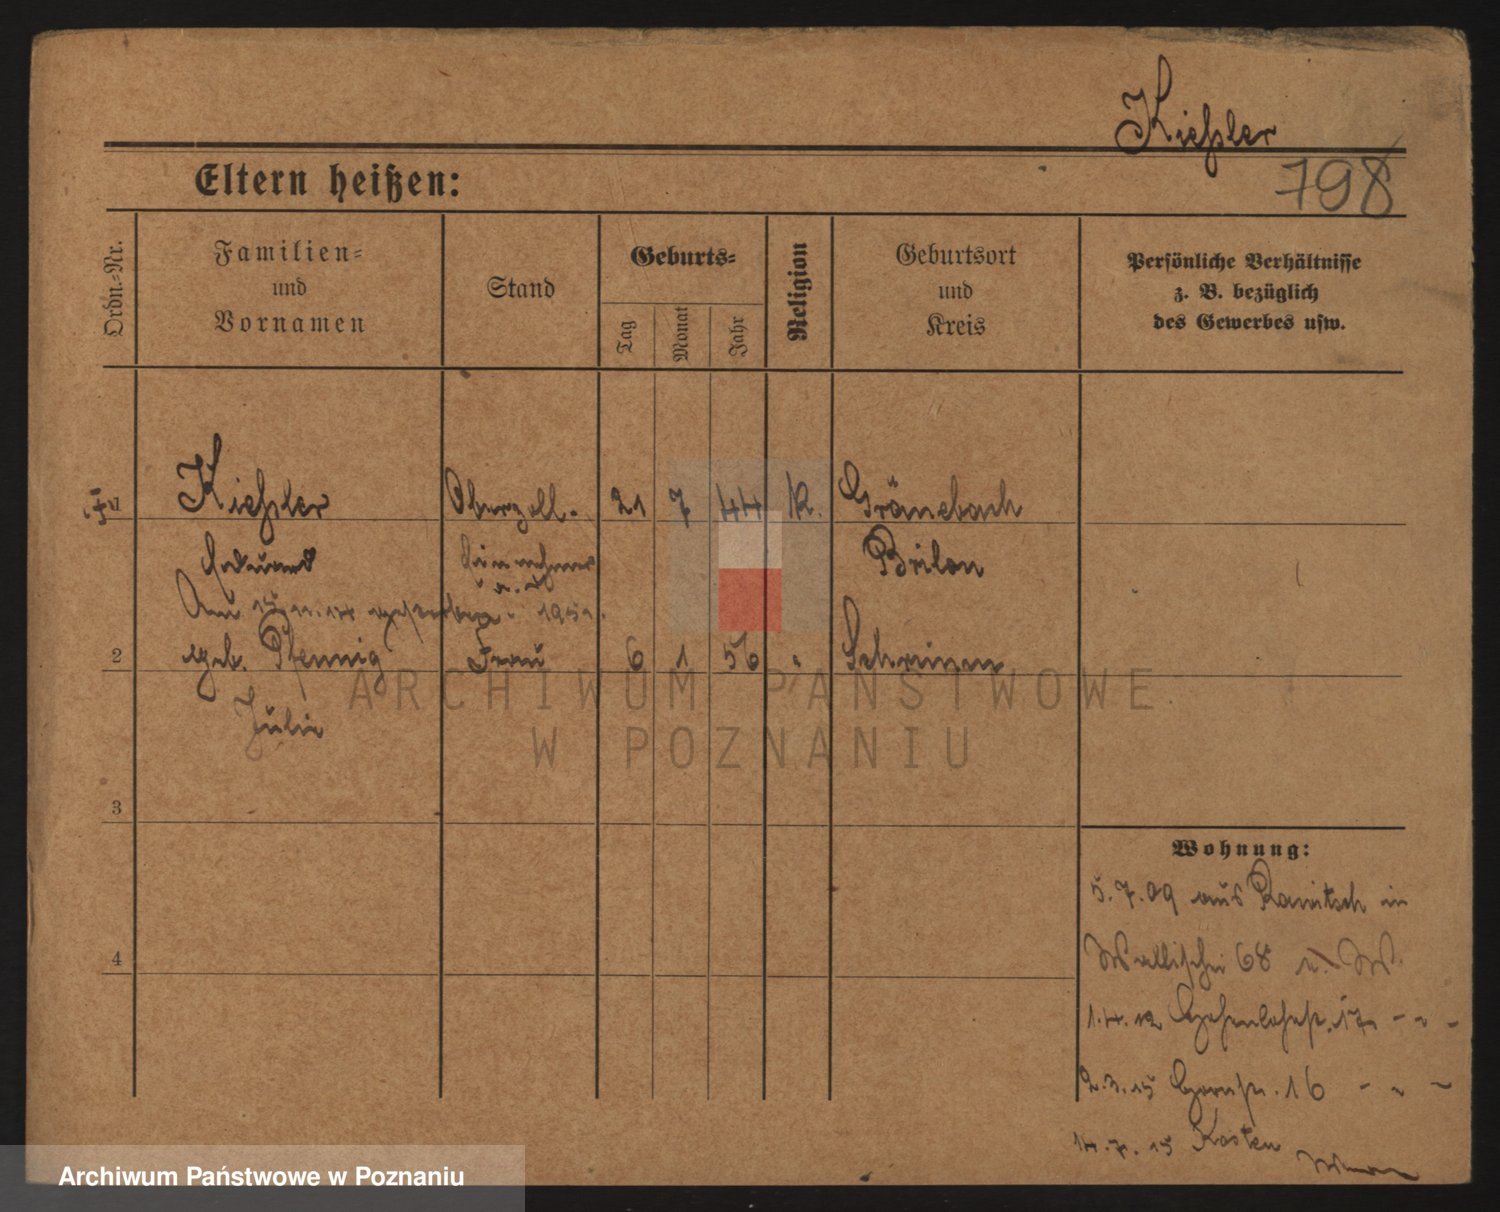 Kießler
798
Eltern heißen:
Ordn.-Nr.
Familien-
und
Vornamen
Stand
Geburts-
Tag
Monat
Jahr
Religion
Geburtsort
und
Kreis
Persönliche Verhältnisse
z. B. bezüglich
des Gewerbes usw.
1 Kießler Oberzoll- 21 7 44 K. Grönebach
Eduard Einnehmer Brilon
a. D.
Am gestorben
2 geb. Pfennig Frau 6 1 56 " Schrimm
Julie
3
4
Wohnung:
5.7.09 aus Rawitsch in
Wallischei 68
1.4.12 Hohenlohestr. 17
2.3.15 16 - " -
14.7.15 Kosten
ARCHIWUM PAŃSTWOWE
W POZNANIU
Archiwum Państwowe w Poznaniu